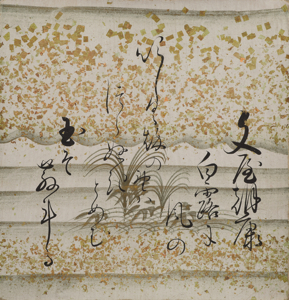 文屋朝康
白露に
風の
吹しく秋の野は
つらぬき
とめぬ
玉そ
散ける